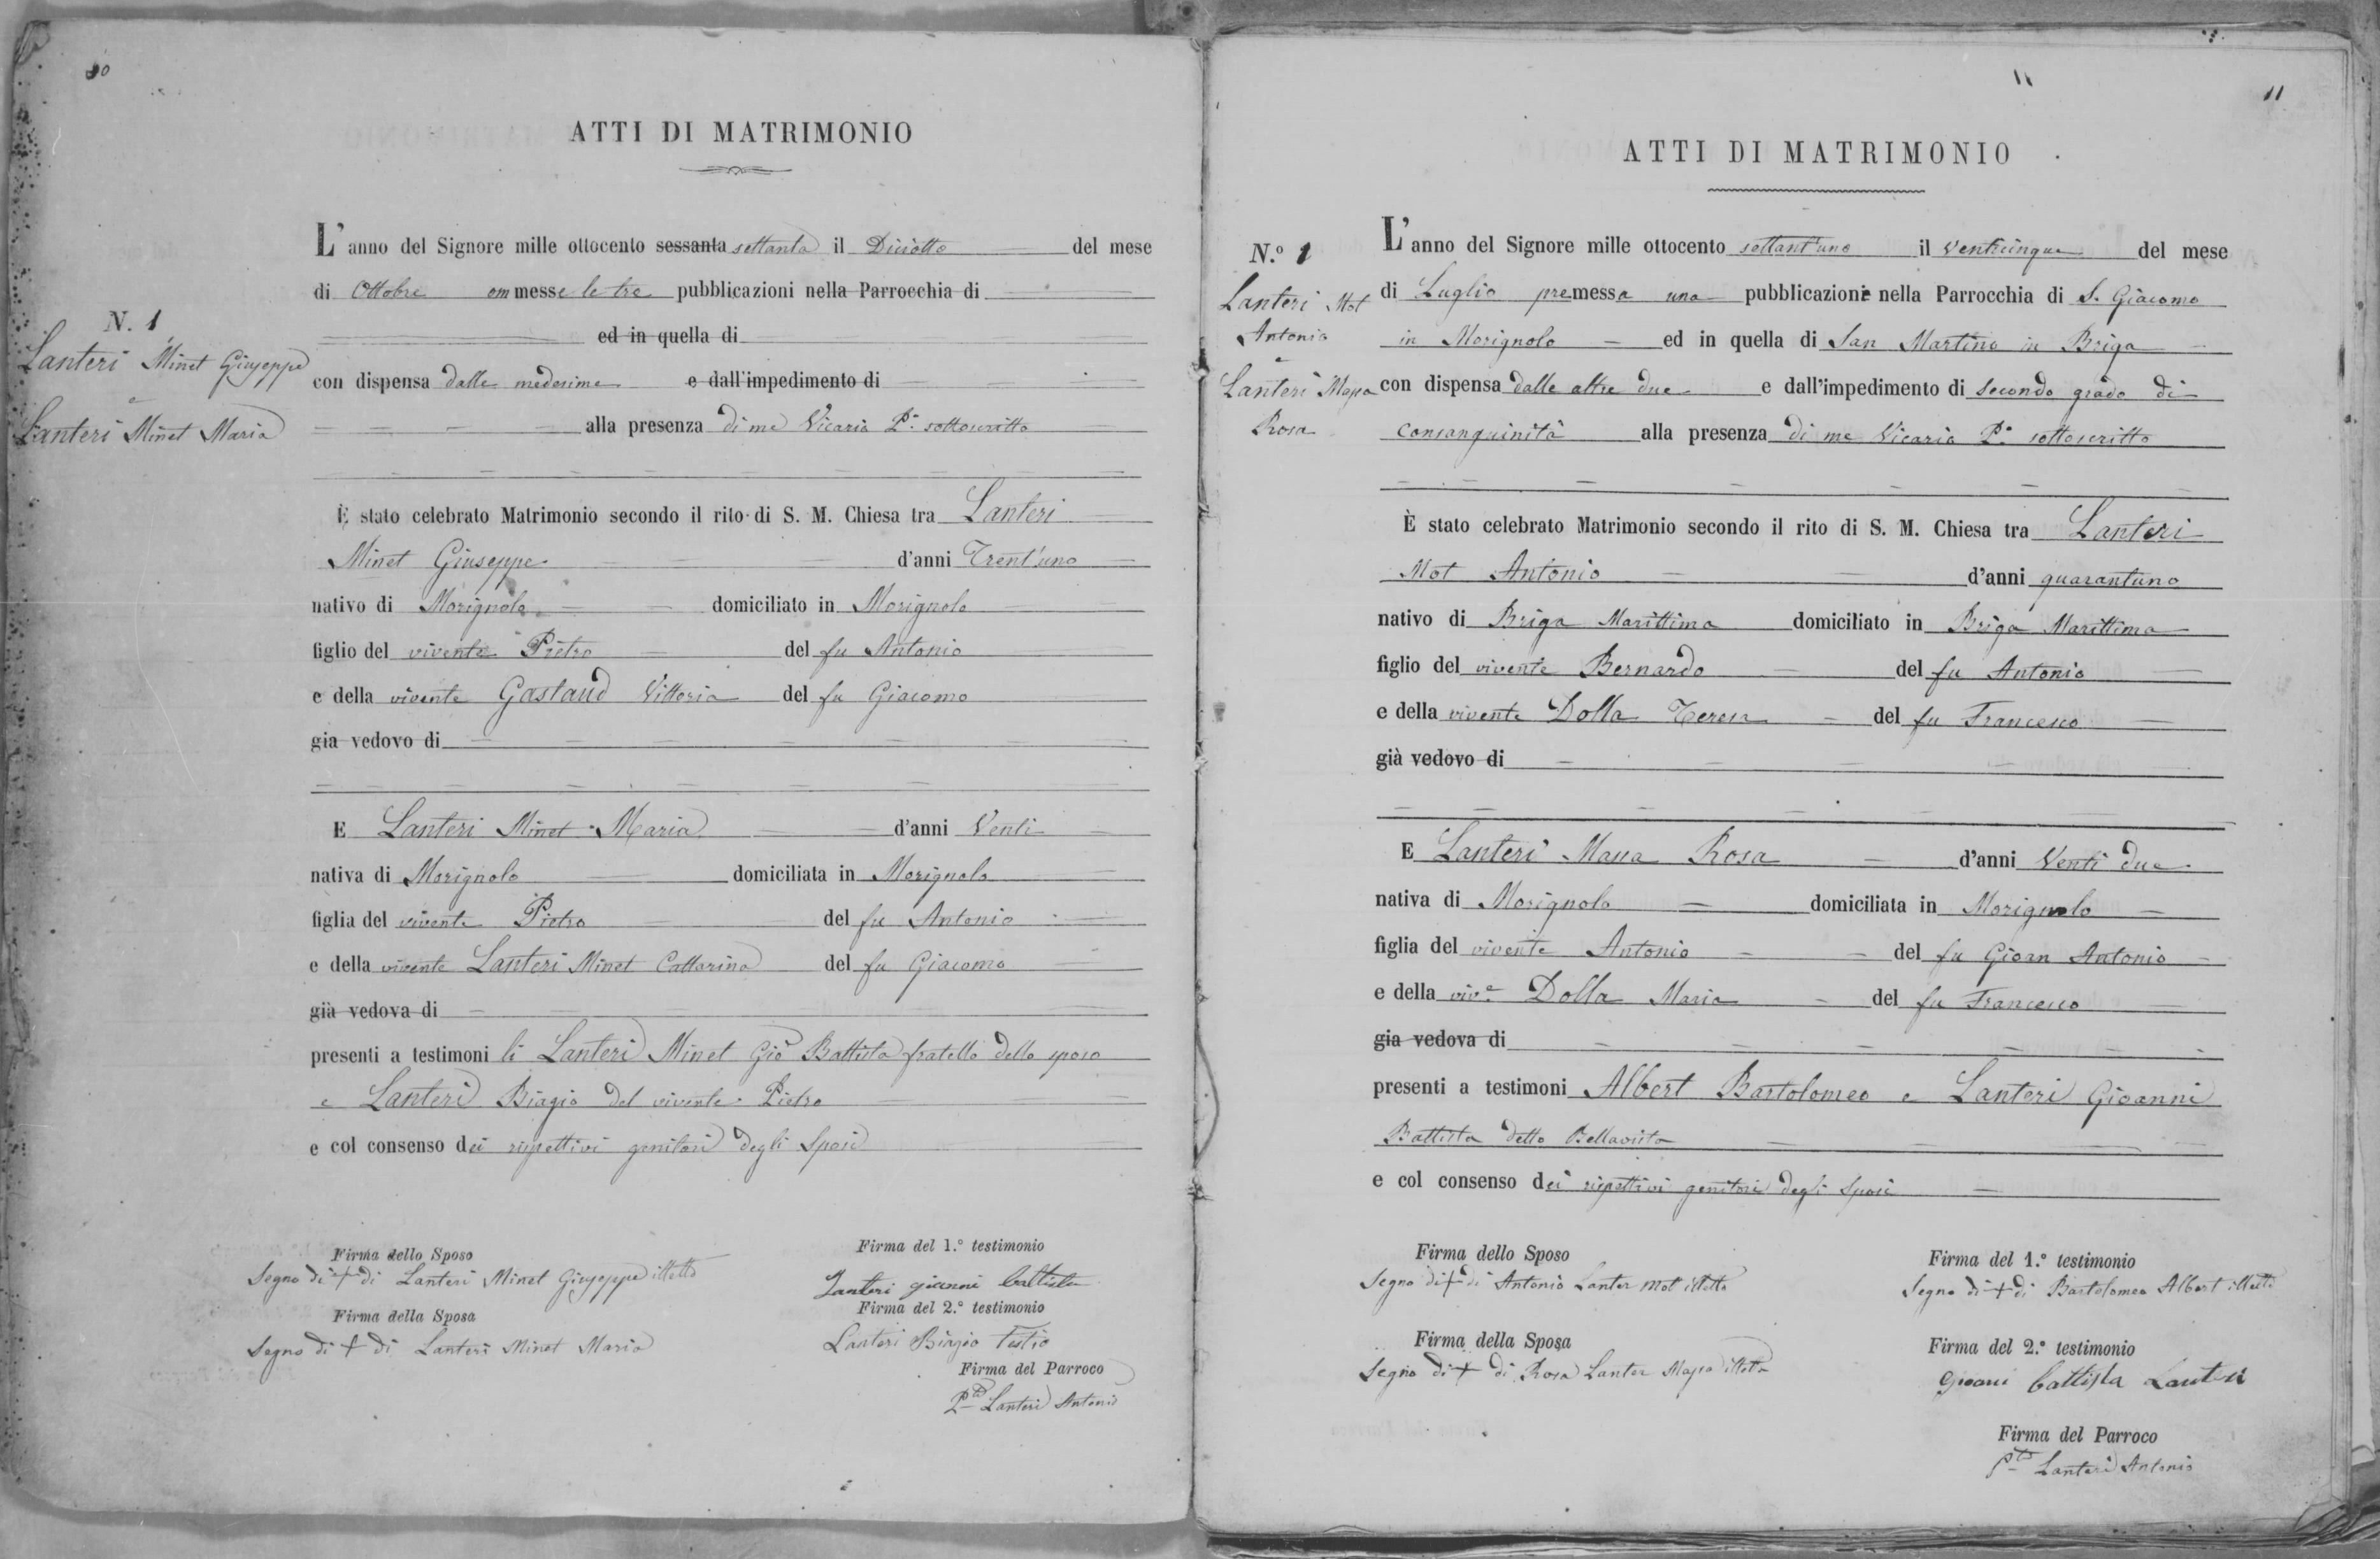 10
ATTI DI MATRIMONIO
N. 1
Lanteri Minet Giuseppe
e
Lanteri Minet Maria
L' anno del Signore mille ottocento sessanta settanta il Diciotto del mese
di Ottobre ommesse le tre pubblicazioni nella Parrocchia di
ed in quella di
con dispensa dalle medesime e dall'impedimento di
alla presenza di me Vicario P. sottoscritto
È stato celebrato Matrimonio secondo il rito di S. M. Chiesa tra Lanteri
Minet Giuseppe d'anni Trent'uno
nativo di Morignolo domiciliato in Morignolo
figlio del vivente Pietro del fu Antonio
e della vivente Gastaud Vittoria del fu Giacomo
già vedovo di
E Lanteri Minet Maria d'anni Venti
nativa di Morignolo domiciliata in Morignolo
figlia del vivente Pietro del fu Antonio
e della vivente Lanteri Minet Cattarina del fu Giacomo
già vedova di
presenti a testimoni li Lanteri Minet Gio Battista fratello dello sposo
e Lanteri Biagio del vivente Pietro
e col consenso dei rispettivi genitori degli Sposi
Firma dello Sposo
Segno di + di Lanteri Minet Giuseppe illett.o
Firma della Sposa
Segno di + di Lanteri Minet Maria
Firma del 1.° testimonio
Lanteri gianni battista
Firma del 2.° testimonio
Lanteri Biagio Testio
Firma del Parroco
Lanteri Antonio
11
11
ATTI DI MATRIMONIO
N.° 1
Lanteri Mot
Antonio
e
Lanteri Massa
Rosa
L' anno del Signore mille ottocento settant'uno il Venticinque del mese
di Luglio premessa una pubblicazione nella Parrocchia di S. Giacomo
in Morignolo ed in quella di San Martino in Briga
con dispensa dalle altre due e dall'impedimento di secondo grado di
consanguinità alla presenza di me Vicario P. sottoscritto
È stato celebrato Matrimonio secondo il rito di S. M. Chiesa tra Lanteri
Mot Antonio d'anni quarantuno
nativo di Briga Marittima domiciliato in Briga Marittima
figlio del vivente Bernardo del fu Antonio
e della vivente Dolla Teresa del fu Francesco
già vedovo di
E Lanteri Massa Rosa d'anni Venti due
nativa di Morignolo domiciliata in Morignolo
figlia del vivente Antonio del fu Gioan Antonio
e della viv.e Dolla Maria del fu Francesco
già vedova di
presenti a testimoni Albert Bartolomeo e Lanteri Gioanni
Battista detto Bellavista
e col consenso dei rispettivi genitori degli Sposi
Firma dello Sposo
Segno di + di Antonio Lanter Mot illett.o
Firma della Sposa
Segno di + di Rosa Lanter Massa illett.a
Firma del 1.° testimonio
Segno di + di Bartolomeo Albert illett.o
Firma del 2.° testimonio
Gioani battista Lanteri
Firma del Parroco
Lanteri Antonio